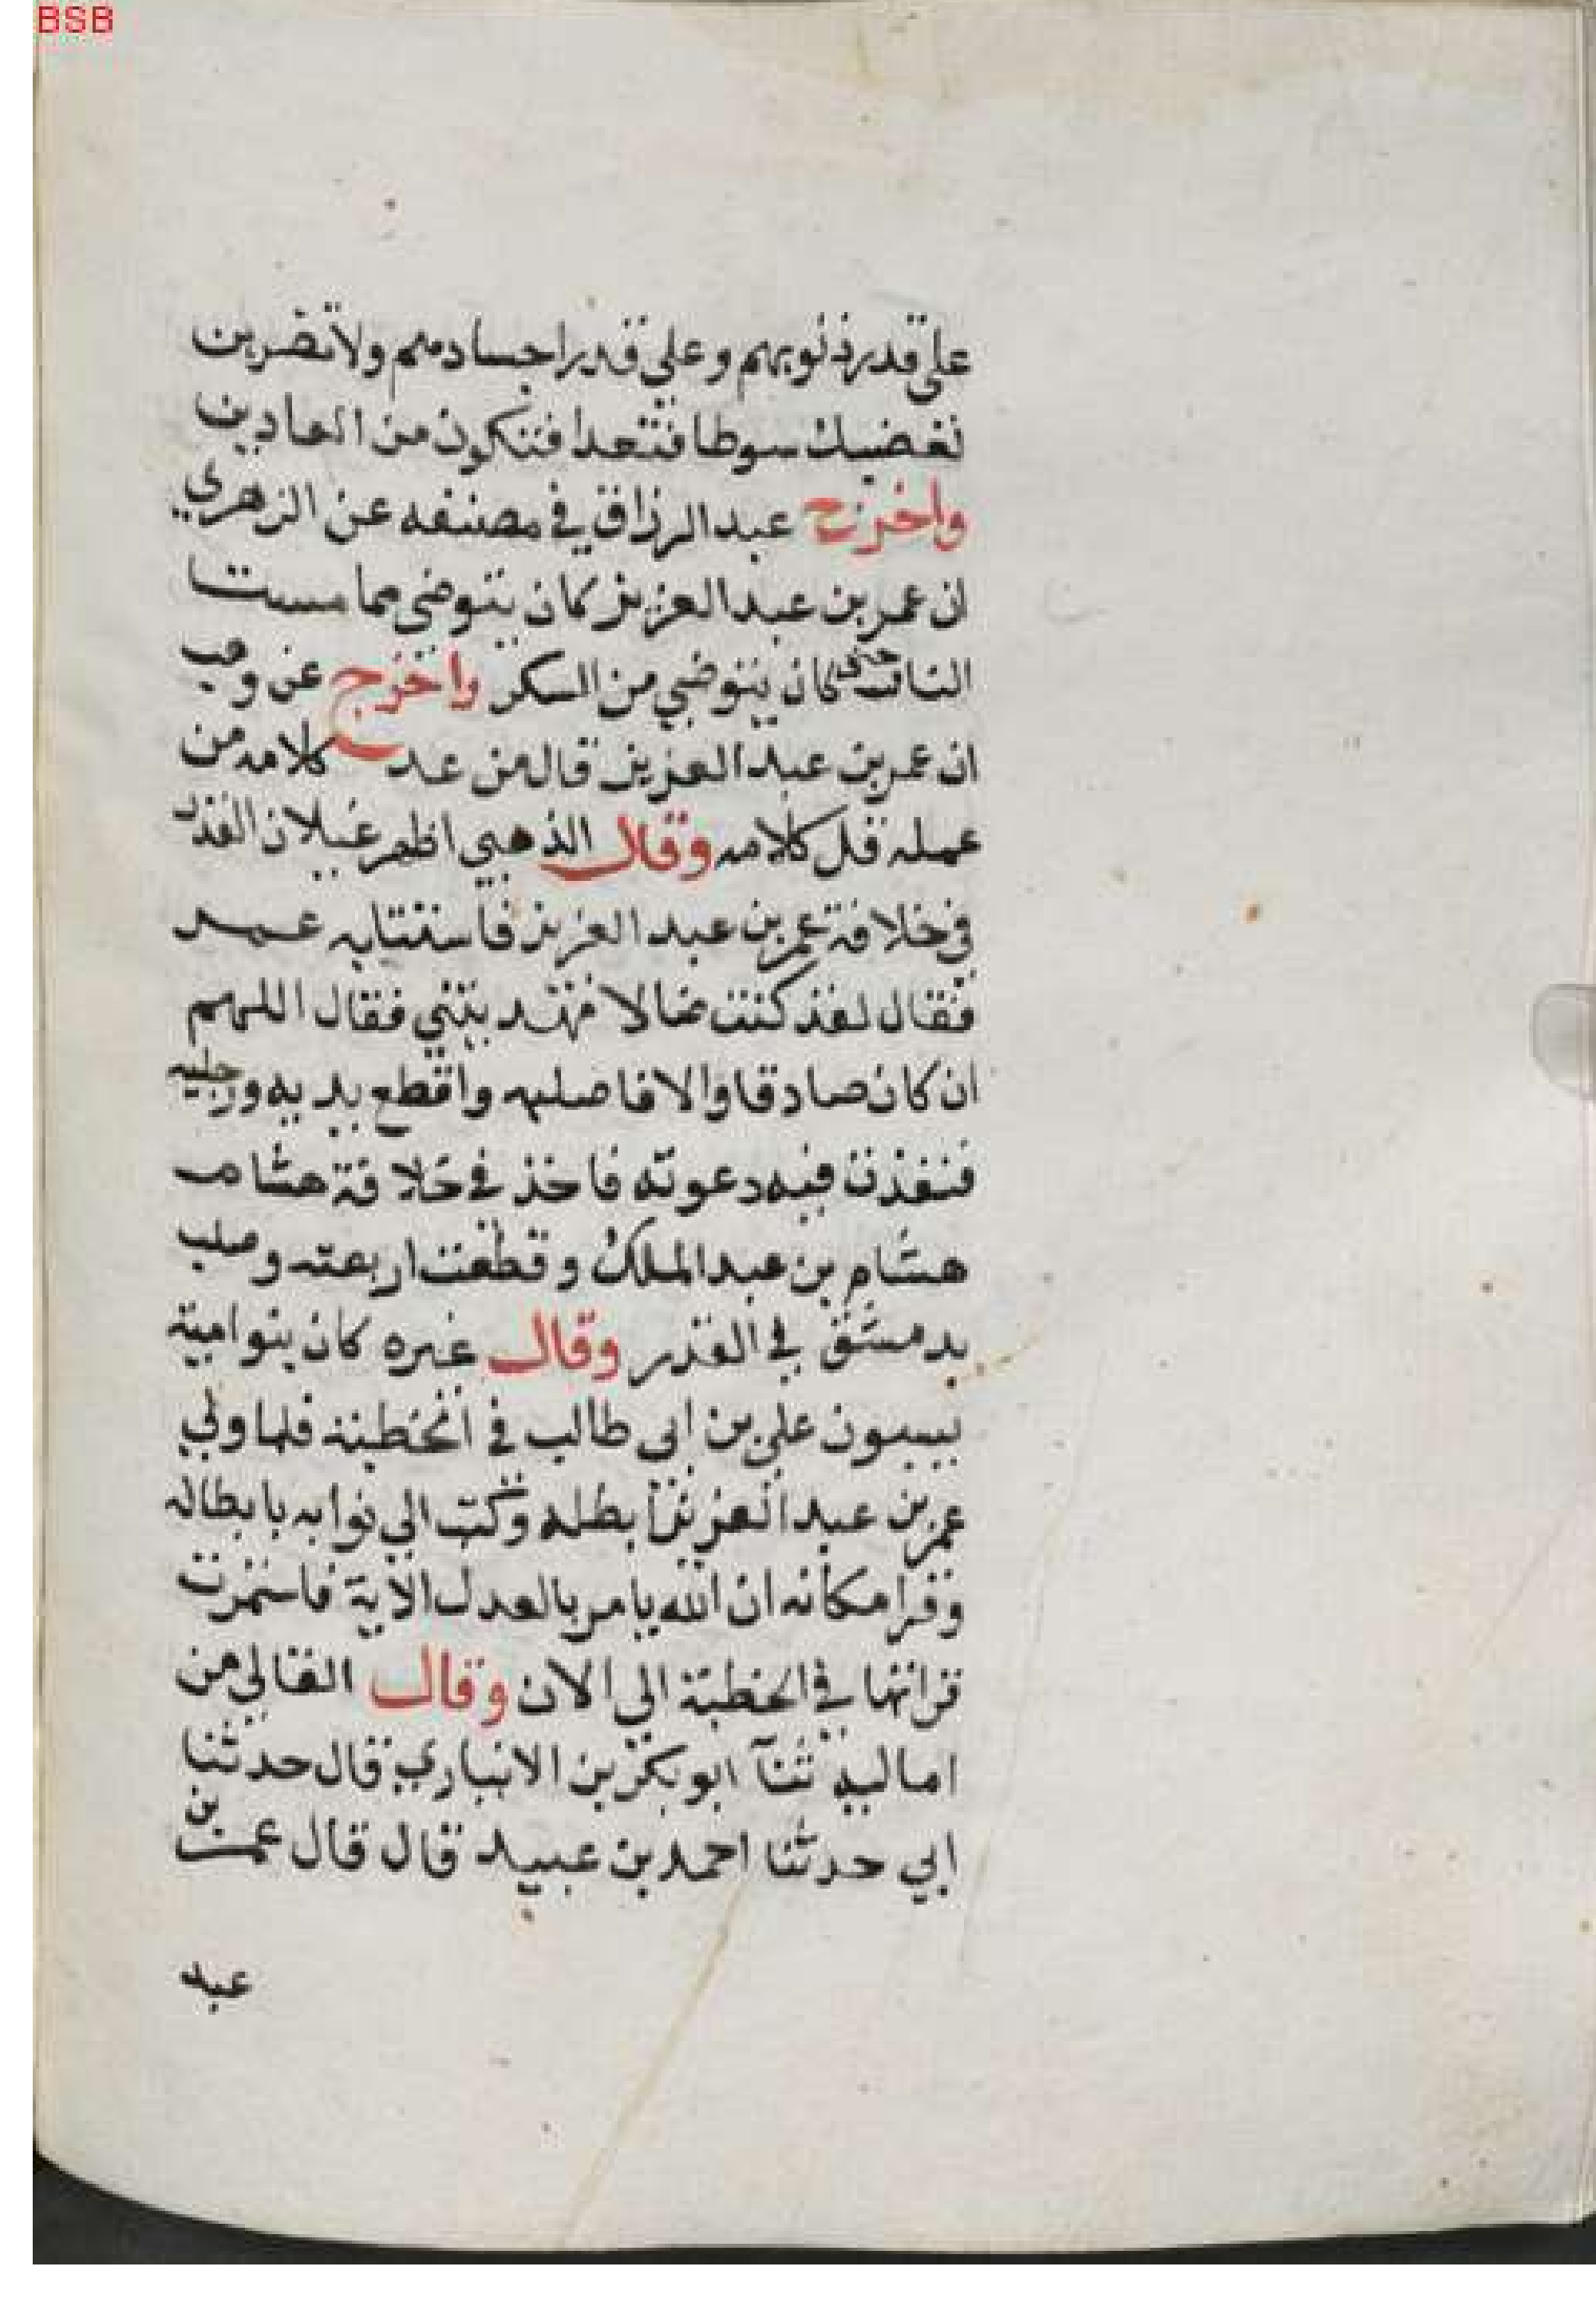 BSB
على قدر ذنوبهم وعلى قدر اجسادهم ولا تضربن
لغضبك سوطا فتتعدا فتكون من العادين
واخرج عبد الرزاق في مصنفه عن الزهري
ان عمر بن عبد العزيز كان يتوضي مما مست
النار حتى كان يتوضي من السكر واخرج عن وهب
ان عمر بن عبد العزيز قال من عد كلامه من
عمله قل كلامه وقال الذهبي اظهر غيلان القدر
في خلافة عمر بن عبد العزيز فاستتابه عمر
فقال لقد كنت ضالا فهديتني فقال اللهم
ان كان صادقا والا فاصلبه واقطع يديه ورجليه
فنفذت فيه دعوته فاخذ في خلافة هشام
هشام بن عبد الملك وقطعت اربعته وصلب
بدمشق في القدر وقال غيره كان بنو امية
يسبون علي بن ابي طالب في الخطبة فلما ولي
عمر بن عبد العزيز ابطله وكتب الى نوابه بابطاله
وقرا مكانه ان الله يامر بالعدل الاية فاستمرت
قراتها في الخطبة الى الان وقال القالي من
اماليه ثنا ابو بكر بن الانباري قال حدثنا
ابي حدثنا احمد بن عبيد قال قال عمر بن
عبد